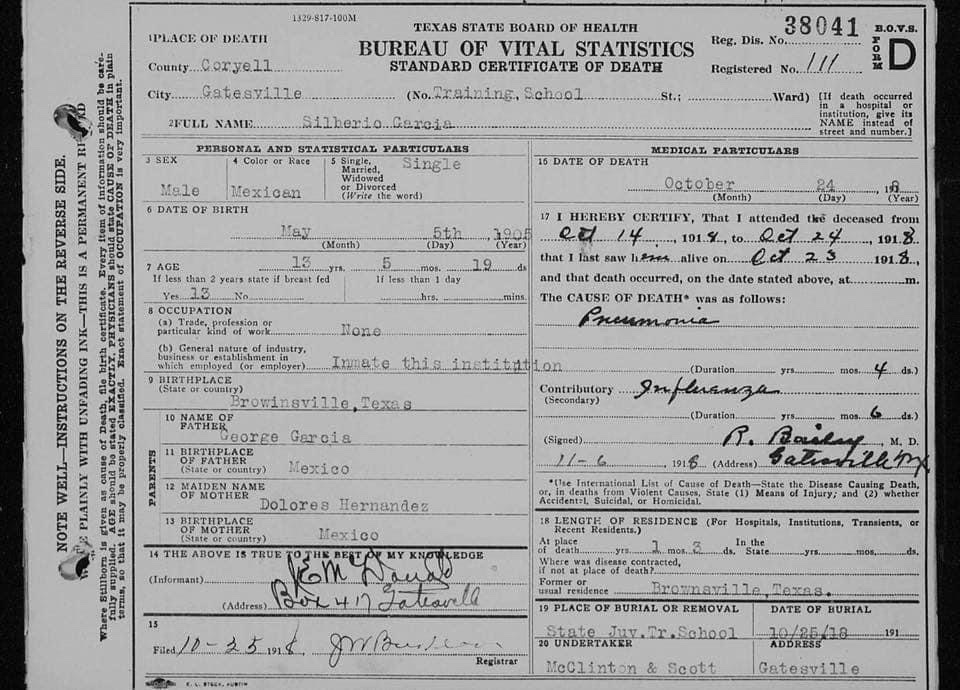 1329-817-100M
TEXAS STATE BOARD OF HEALTH
BUREAU OF VITAL STATISTICS
STANDARD CERTIFICATE OF DEATH
Reg. Dis. No. 38041
Registered No. 111
B.O.V.S.
FORM D
1PLACE OF DEATH
County Coryell
City Gatesville (No. Training School St.; Ward)
[If death occurred in a hospital or institution, give its NAME instead of street and number.]
2FULL NAME Silberio Garcia
PERSONAL AND STATISTICAL PARTICULARS
3 SEX Male
4 Color or Race Mexican
5 Single, Married, Widowed or Divorced (Write the word) Single
6 DATE OF BIRTH
May 5th, 1905
(Month) (Day) (Year)
7 AGE 13 yrs. 5 mos. 19 ds
If less than 2 years state if breast fed
Yes 13 No
If less than 1 day
hrs. mins.
8 OCCUPATION
(a) Trade, profession or particular kind of work None
(b) General nature of industry, business or establishment in which employed (or employer) Inmate this institution
9 BIRTHPLACE
(State or country)
Browinsville, Texas
PARENTS
10 NAME OF FATHER George Garcia
11 BIRTHPLACE OF FATHER (State or country) Mexico
12 MAIDEN NAME OF MOTHER Dolores Hernandez
13 BIRTHPLACE OF MOTHER (State or country) Mexico
14 THE ABOVE IS TRUE TO THE BEST OF MY KNOWLEDGE
(Informant) McDonald
(Address) Box 417 Gatesvill
15
Filed 10-25 1918
Registrar
E. L. STECK, AUSTIN
MEDICAL PARTICULARS
16 DATE OF DEATH
October 24, 1918
(Month) (Day) (Year)
17 I HEREBY CERTIFY, That I attended the deceased from
Oct 14, 1918, to Oct 24, 1918
that I last saw hem alive on Oct 23 1918,
and that death occurred, on the date stated above, at m.
The CAUSE OF DEATH* was as follows:
Pneumonia
(Duration yrs. mos. 4 ds.)
Contributory Influanza
(Secondary)
(Duration yrs. mos. 6 ds.)
(Signed) R. Bailey, M. D.
11-6 1918 (Address) Gatesville Tx
*Use International List of Cause of Death—State the Disease Causing Death,
or, in deaths from Violent Causes, State (1) Means of Injury; and (2) whether
Accidental, Suicidal, or Homicidal.
18 LENGTH OF RESIDENCE (For Hospitals, Institutions, Transients, or Recent Residents.)
At place of death yrs. 1 mos. 3 ds. In the State yrs. mos. ds.
Where was disease contracted,
if not at place of death?
Former or usual residence Brownsville, Texas.
19 PLACE OF BURIAL OR REMOVAL
State Juv. Tr. School
DATE OF BURIAL
10/25/18 191
20 UNDERTAKER
McClinton & Scott
ADDRESS
Gatesville
NOTE WELL—INSTRUCTIONS ON THE REVERSE SIDE.
PLAINLY WITH UNFADING INK—THIS IS A PERMANENT
Where Stillborn is given as cause of Death file birth certificate. Every item of information should be care-
fully supplied. AGE should be stated EXACTLY. PHYSICIANS should state CAUSE OF DEATH in plain
terms, so that it may be properly classified. Exact statement of OCCUPATION is very important.